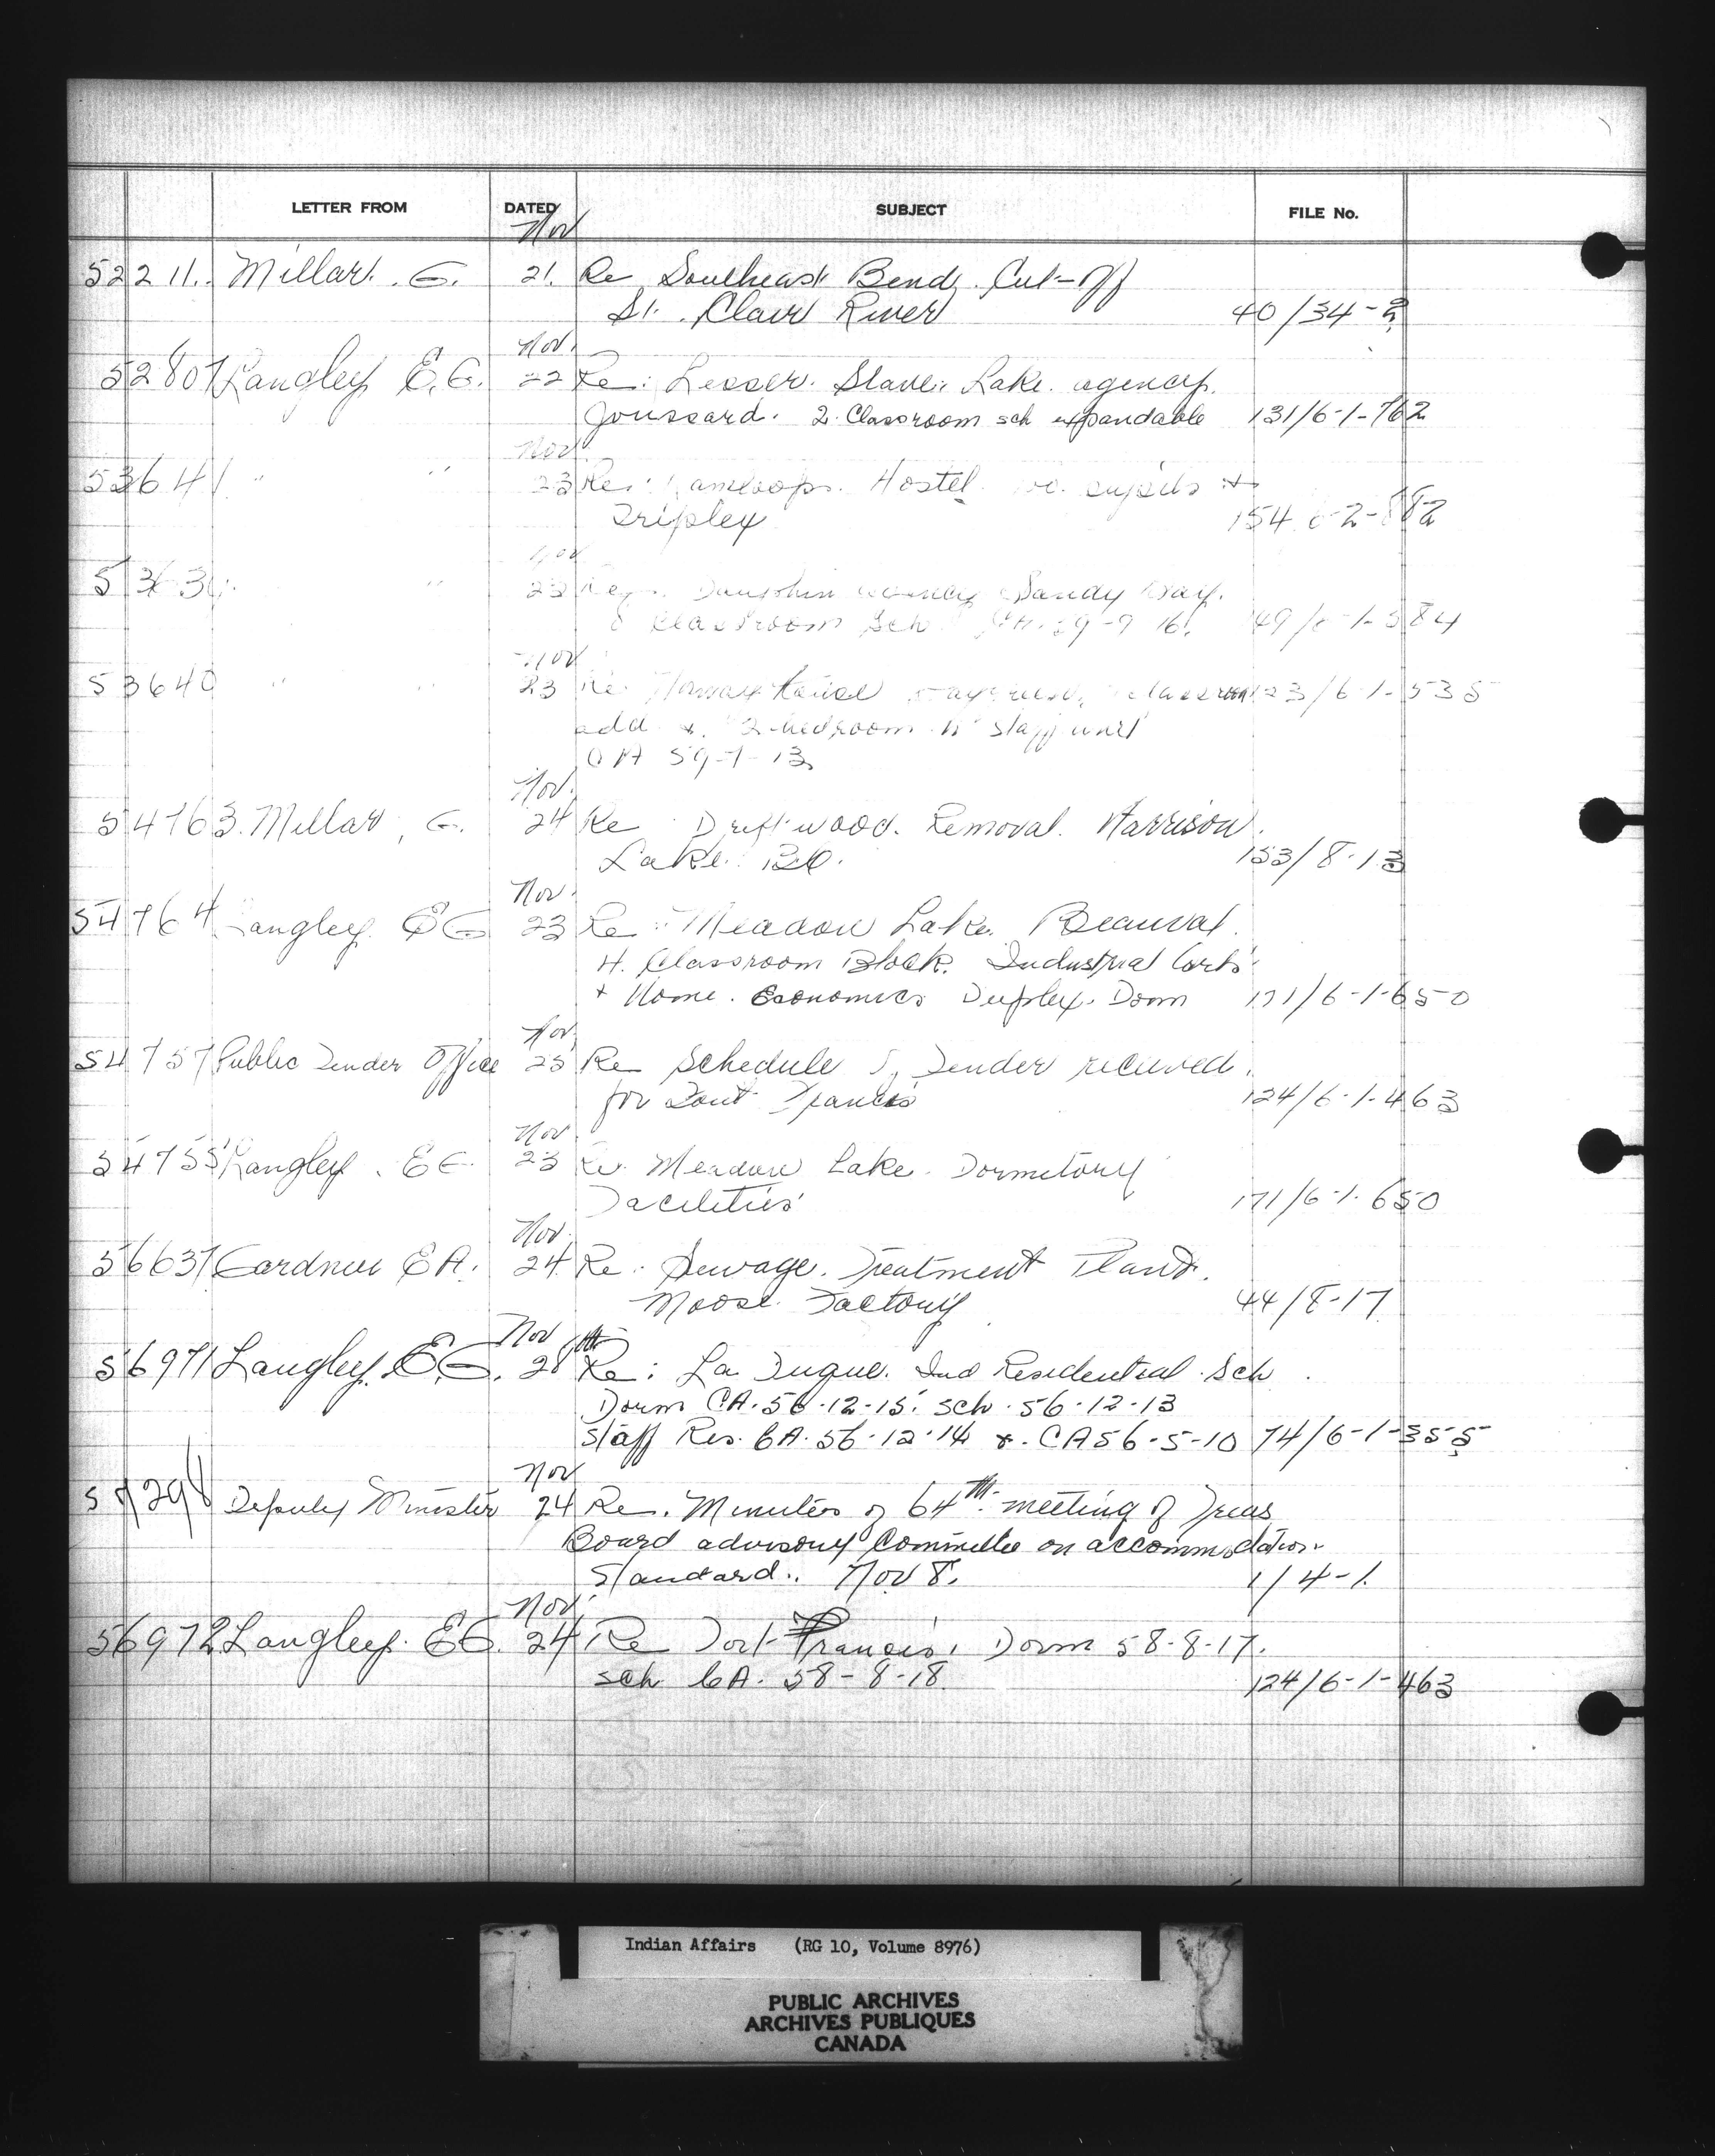 LETTER FROM DATED SUBJECT FILE No.
Nov
52211. Millar. G. 21. Re Southeast Bend, Cut-Off
St. Clair River 40/34-2
Nov.
52807 Langley E.G. 22 Re: Lesser. Slave. Lake. agency.
Joussard. 2. Classroom sch expandable 131/6-1-762
Nov.
53641 " " 23 Re: Kamloops. Hostel pupils +
Triplex 154 -2-882
Nov
" 23 Re Dauphin agency Sandy Bay.
Classroom Sch 584
Nov
53640 " " 23 Re 123/6-1-535
add + 2-bedroom staff unit
59-7-13
Nov.
54763. Millar, G. 24 Re Driftwood. Removal. Harrison
Lake. B.C. 153/8-13
Nov.
54764 Langley. EG 23 Re: Meadow Lake. Beauval.
4. Classroom Block. Industrial Arts
+ Home. Economics Duplex. Dorm 171/6-1-650
Nov.
54757 Public Tender Office 25 Re Schedule of Tender received.
for Fort Francis 124/6-1-463
Nov
54755 Langley. EG. 23 Re. Meadow Lake. Dormitory
Facilities 171/6-1-650
Nov.
56637 Gardner E A. 24. Re: Sewage. Treatment Plant.
Moose. Factory 44/8-17
Nov
56971 Langley. E.G. 28 Re: La Tuque. Ind Residential. Sch
Dorm CA. 56-12-15. sch. 56-12-13
Staff Res. CA. 56-12-14 & CA 56-5-10 74/6-1-355
Nov
Deputy Minister 24 Re. Minutes of 64th meeting of Treas
Board advisory Committee on accommodation
Standard. Nov 8. 1/4-1
Nov.
56972 Langley. EG. 24 Re Fort Francis, Dorm 58-8-17.
sch CA. 58-8-18 124/6-1-463
Indian Affairs (RG 10, Volume 8976)
PUBLIC ARCHIVES
ARCHIVES PUBLIQUES
CANADA